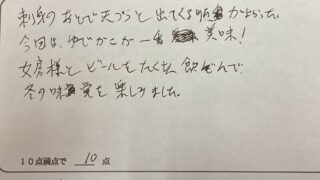 刺身のあとで天ぷらと出てくる順番がよかった。
今回は、ゆでがこが一番美味!
女房様とビールをたくさん飲んで
冬の味覚を楽しみました。
10点満点で 10 点